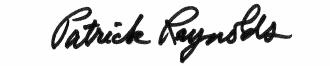 Patrick Reynolds